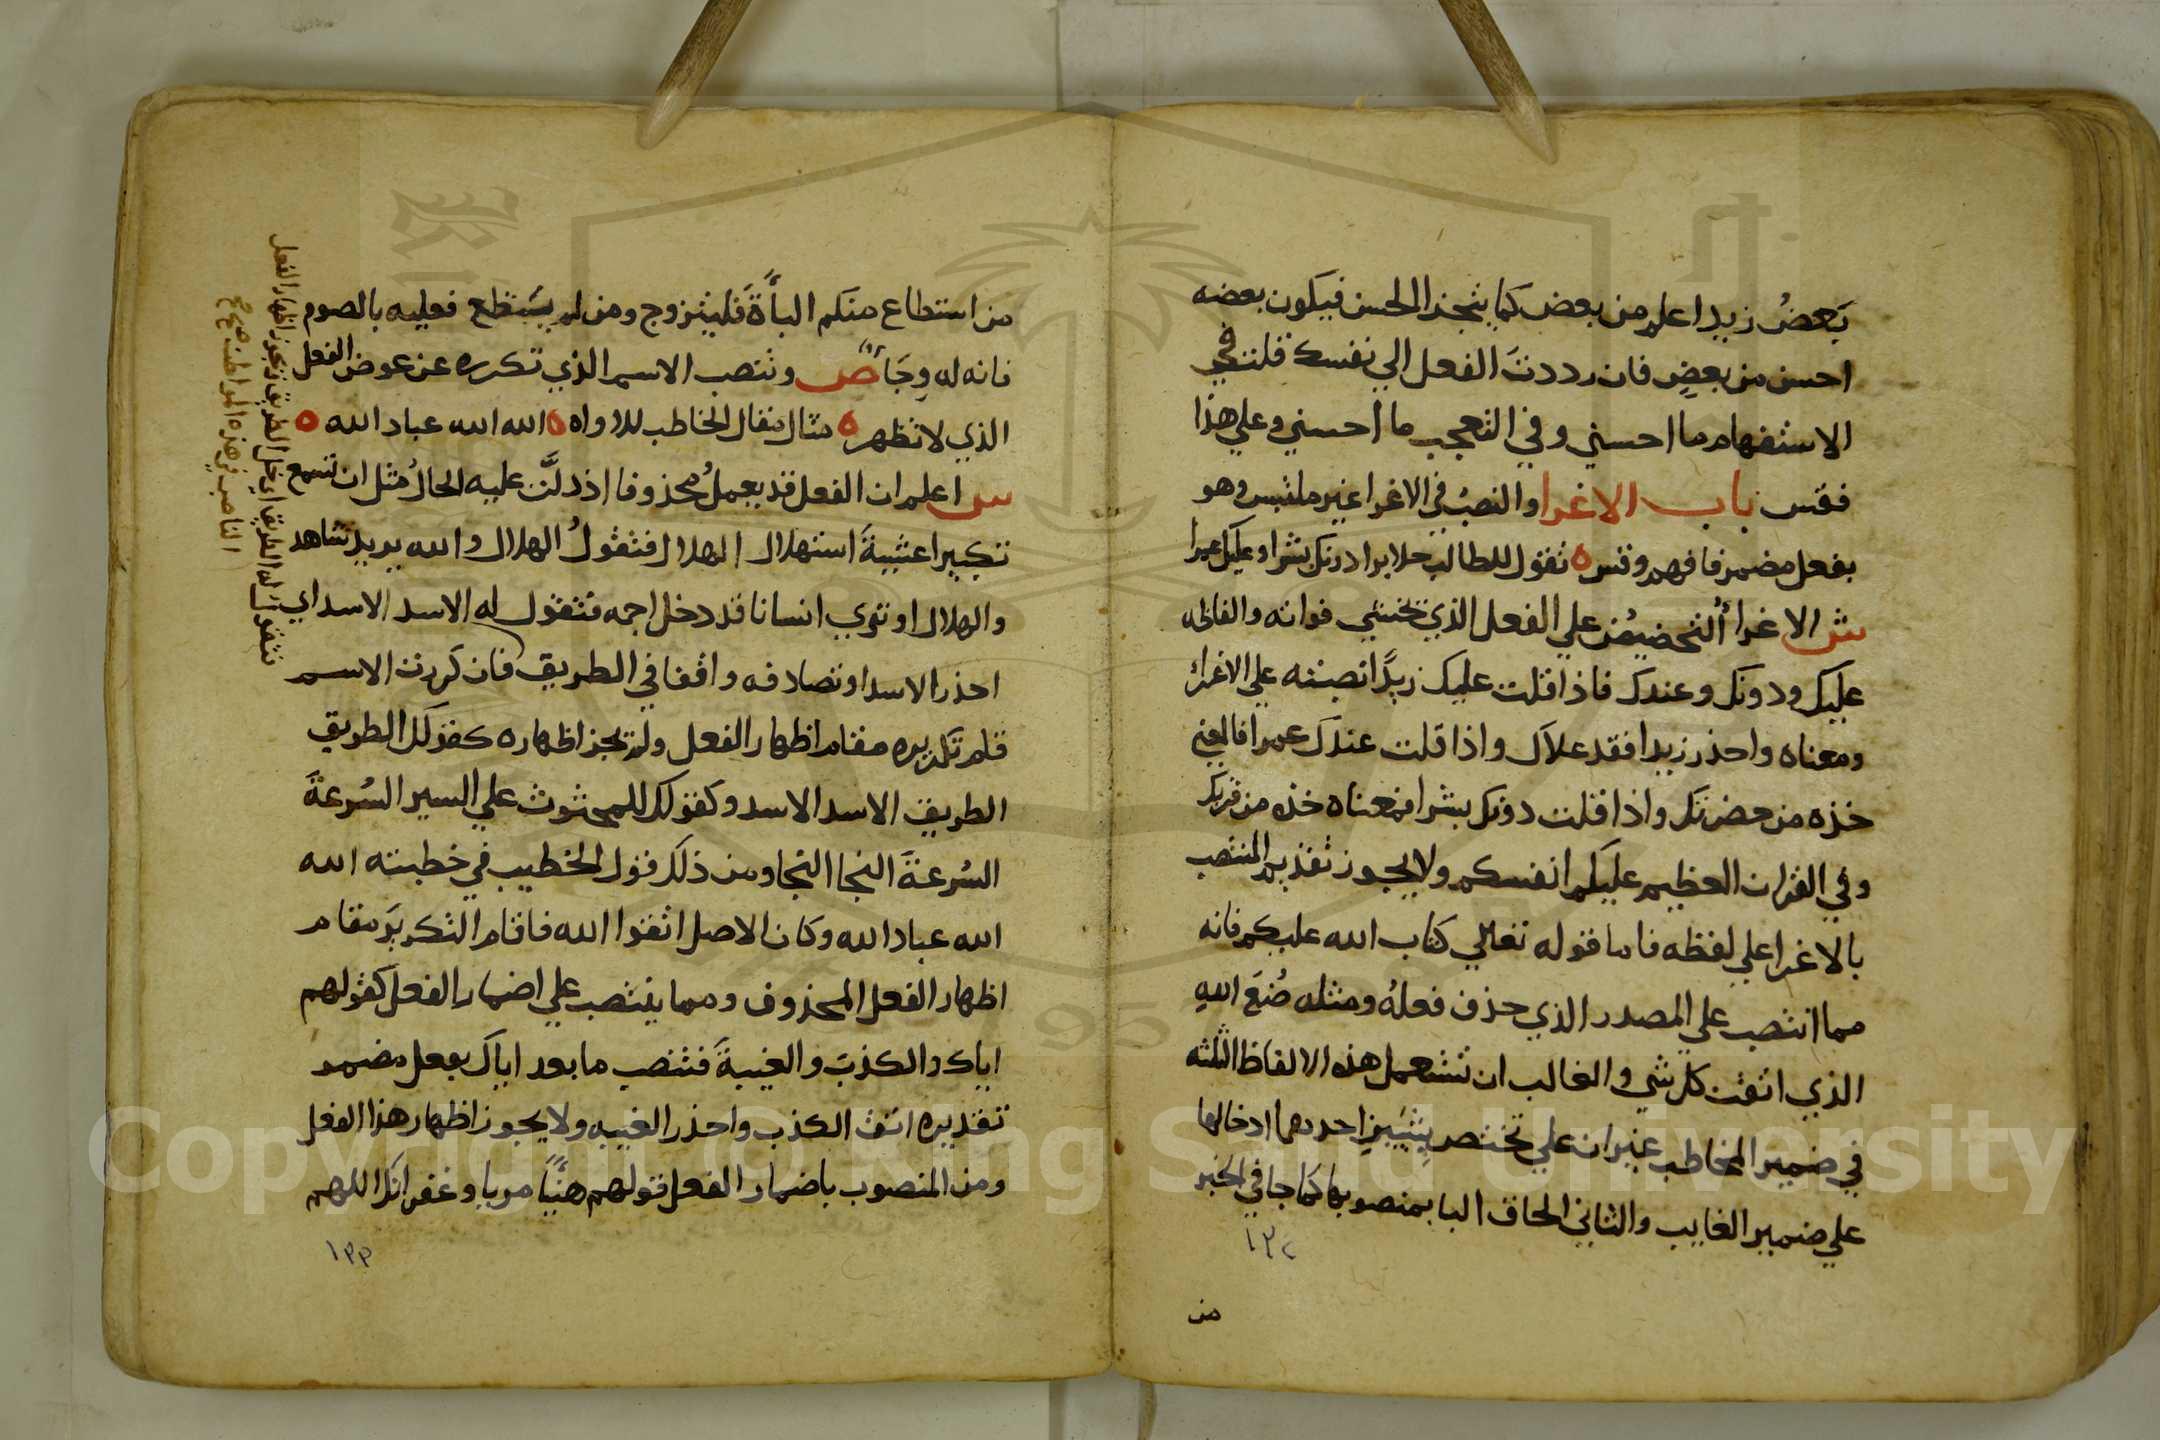 بَعضُ زيدا علم من بعض كما يتجزا الحسن فيكون بعضه
احسن من بعضٍ فان رددت الفعل الي نفسك قلت في
الاستفهام ما احسني وفي التعجب ما احسنني وعلي هذا
فقس باب الاغرا والنصبُ في الاغرا غير ملتبس وهو
بفعل مضمر فافهم وقس ه تقول للطالب خلا برا دونك بشرا وعليك عمرا
ش الاغرا ألتحضيض علي الفعل الذي تخشي فواته والفاظه
عليك ودونك وعندك فاذا قلت عليك زيدًا نصبته علي الاغراء
ومعناه واحذر زيدا فقد علاك واذا قلت عندك عمرا فالمعني
خذه من حضرتك واذا قلت دونك بشرا فمعناه خذه من قربك
وفي القران العظيم عليكم انفسكم ولا يجوز تقديم المنتصب
بالاغرا علي لفظه فاما قوله تعالي كتاب الله عليكم فانه
مما انتصب علي المصدر الذي حذف فعلهُ ومثله صُنعَ اللهِ
الذي اتقن كل شي والغالب ان تستعمل هذه الالفاظ الثلثه
في ضمير المخاطب غير ان علي تختص بشيئين احدهما ادخالها
علي ضمير الغايب والثاني الحاق البا بمنصوبها كما جا في الخبر
١٣٢
من
من استطاع منكم الباأةَ فليتزوج ومن لم يستطع فعليه بالصوم
فانه له وِجَاأ ص وتنصب الاسم الذي تكرره عن عوض الفعل
الذي لا تظهر ه مثال مقال الخاطب للاواه ه الله الله عباد الله ه
س اعلم ان الفعل قد يعملُ محذوفا اذ دلَّت عليه الحالُ مثل ان تسمع
تكبيرا عشيةَ استهلال الهلال فتقولُ الهلال والله يريد تشاهد
والهلال او تري انسانا قد دخل اجمه فتقول له الاسد الاسد اي
احذر الاسد او تصادفه واقفا في الطريق فان كررت الاسم
قام تكريره مقام اظهار الفعل ولم يجز اظهاره كقولك الطريق
الطريق الاسد الاسد وكقولك للمحثوث علي السير السُرعةَ
السُرعةَ النجا النجا ومن ذلك قول الخطيب في خطبته الله
الله عباد الله وكان الاصل اتقوا الله فاقام التكريرَ مقام
اظهار الفعل المحذوف ومما ينتصب علي اضمار الفعل كقولهم
اياك والكذبَ والغيبةَ فتنصب ما بعد اياك بفعل مضمر
تقديره اتق الكذب واحذر الغيبه ولا يجوز اظهار هذا الفعل
ومن المنصوب باضمار الفعل قولهم هنيًا مريا وغفرانك اللهم
١٣٣
فتقول له الطريق اي خل الطريق ويجوز اظهار الفعل
الناصب في هذه المواطن صح
Copyright © King Saud University
195